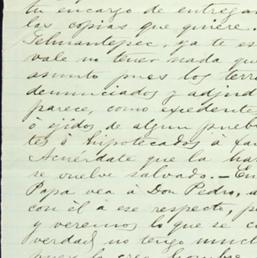 tu encargo de entregar
las copias que quiere.
Tehuantepec, ya te es
vale no tener nada que
asunto pues los terre
denunciados y adjud
parece, como excedente
ó ejidos de algun pueb
tos ó hipotecados a fa
Acuérdate que la ha
se vuelve salvado. — En
Papa vea á Don Pedro, a
con él á ese respecto, p
y veremos lo que se c
verdad no tengo much